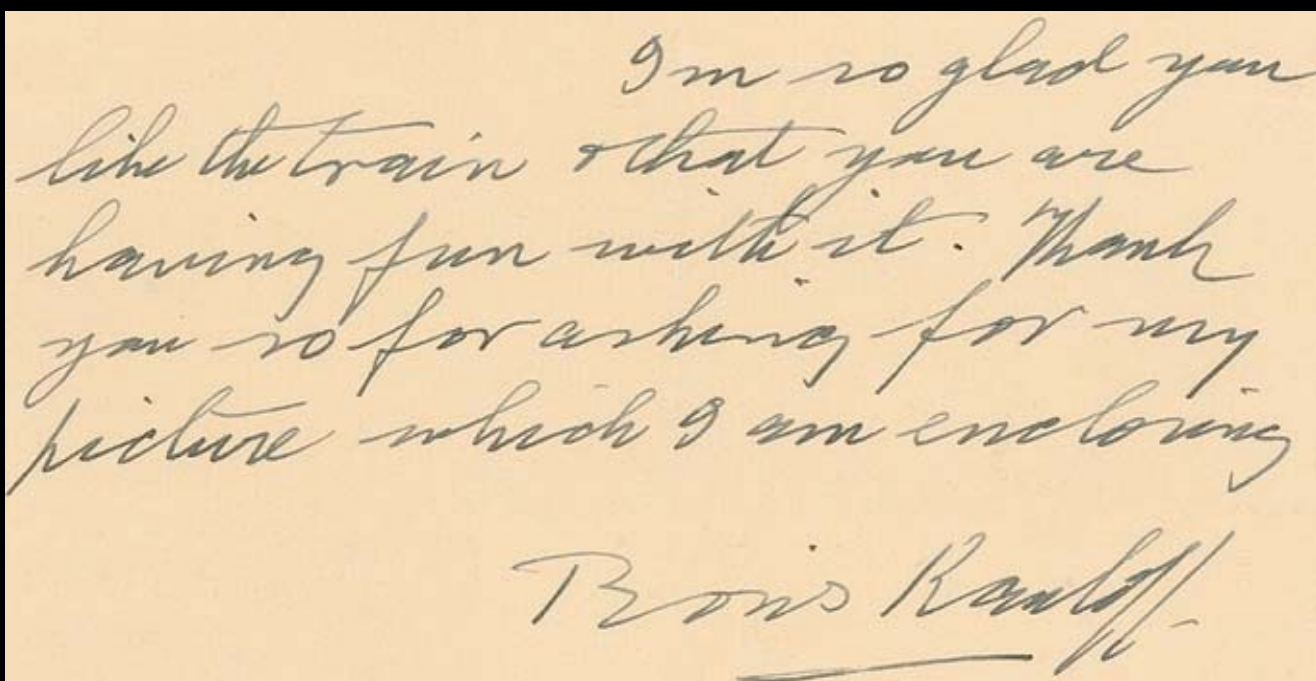 Im so glad you
like the train & that you are
having fun with it. Thank
you so for asking for my
picture which I am enclosing
Boris Karloff.